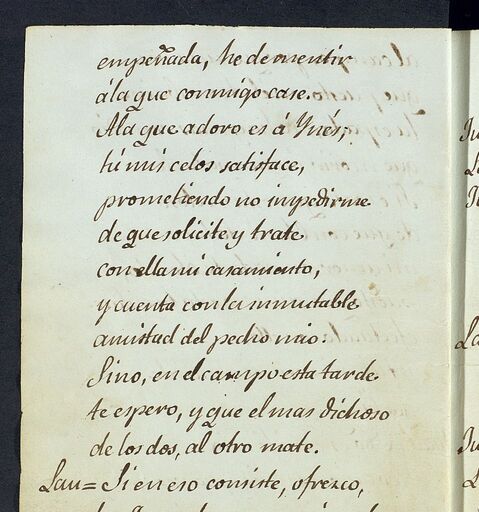 empeñada, he de mentir
á la que conmigo case.
A la que adoro es á Ynés;
tú mis celos satisface,
prometiendo no impedirme
de que solicite y trate
con ella mi casamiento,
y cuenta con la inmutable
amistad del pecho mio.
Sino, en el campo esta tarde
te espero, y que el mas dichoso
de los dos, al otro mate.
Lau= Si en eso consiste, ofrezco,